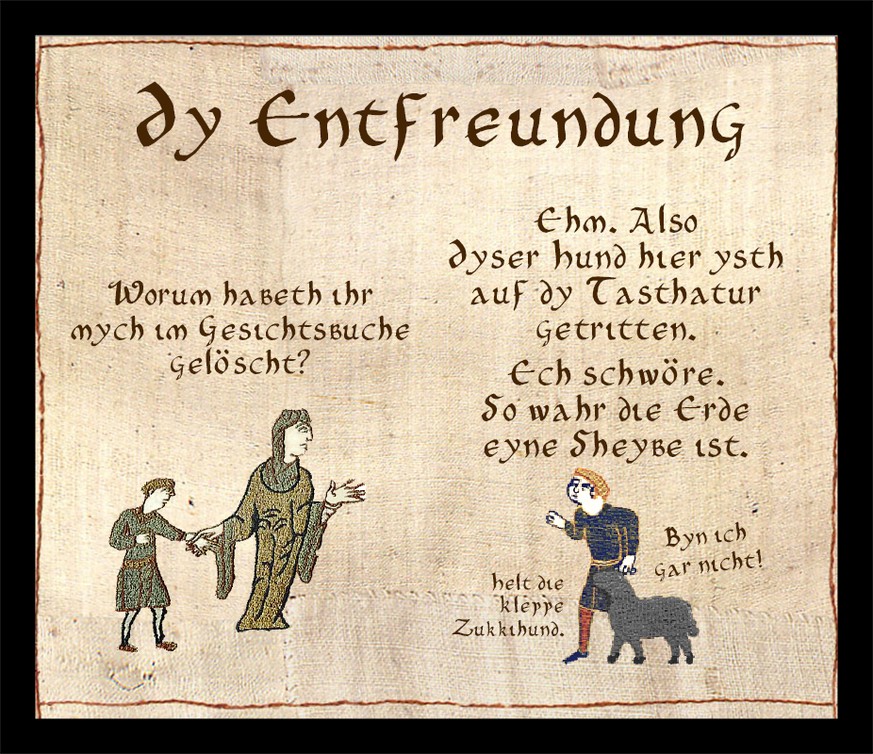 dy Entfreundung
Worum habeth ihr
mych im Gesichtsbuche
gelöscht?
Ehm. Also
dyser hund hier ysth
auf dy Tasthatur
getritten.
Ech schwöre.
So wahr die Erde
eyne Sheybe ist.
Byn ich
gar nicht!
helt die
kleppe
Zukkihund.